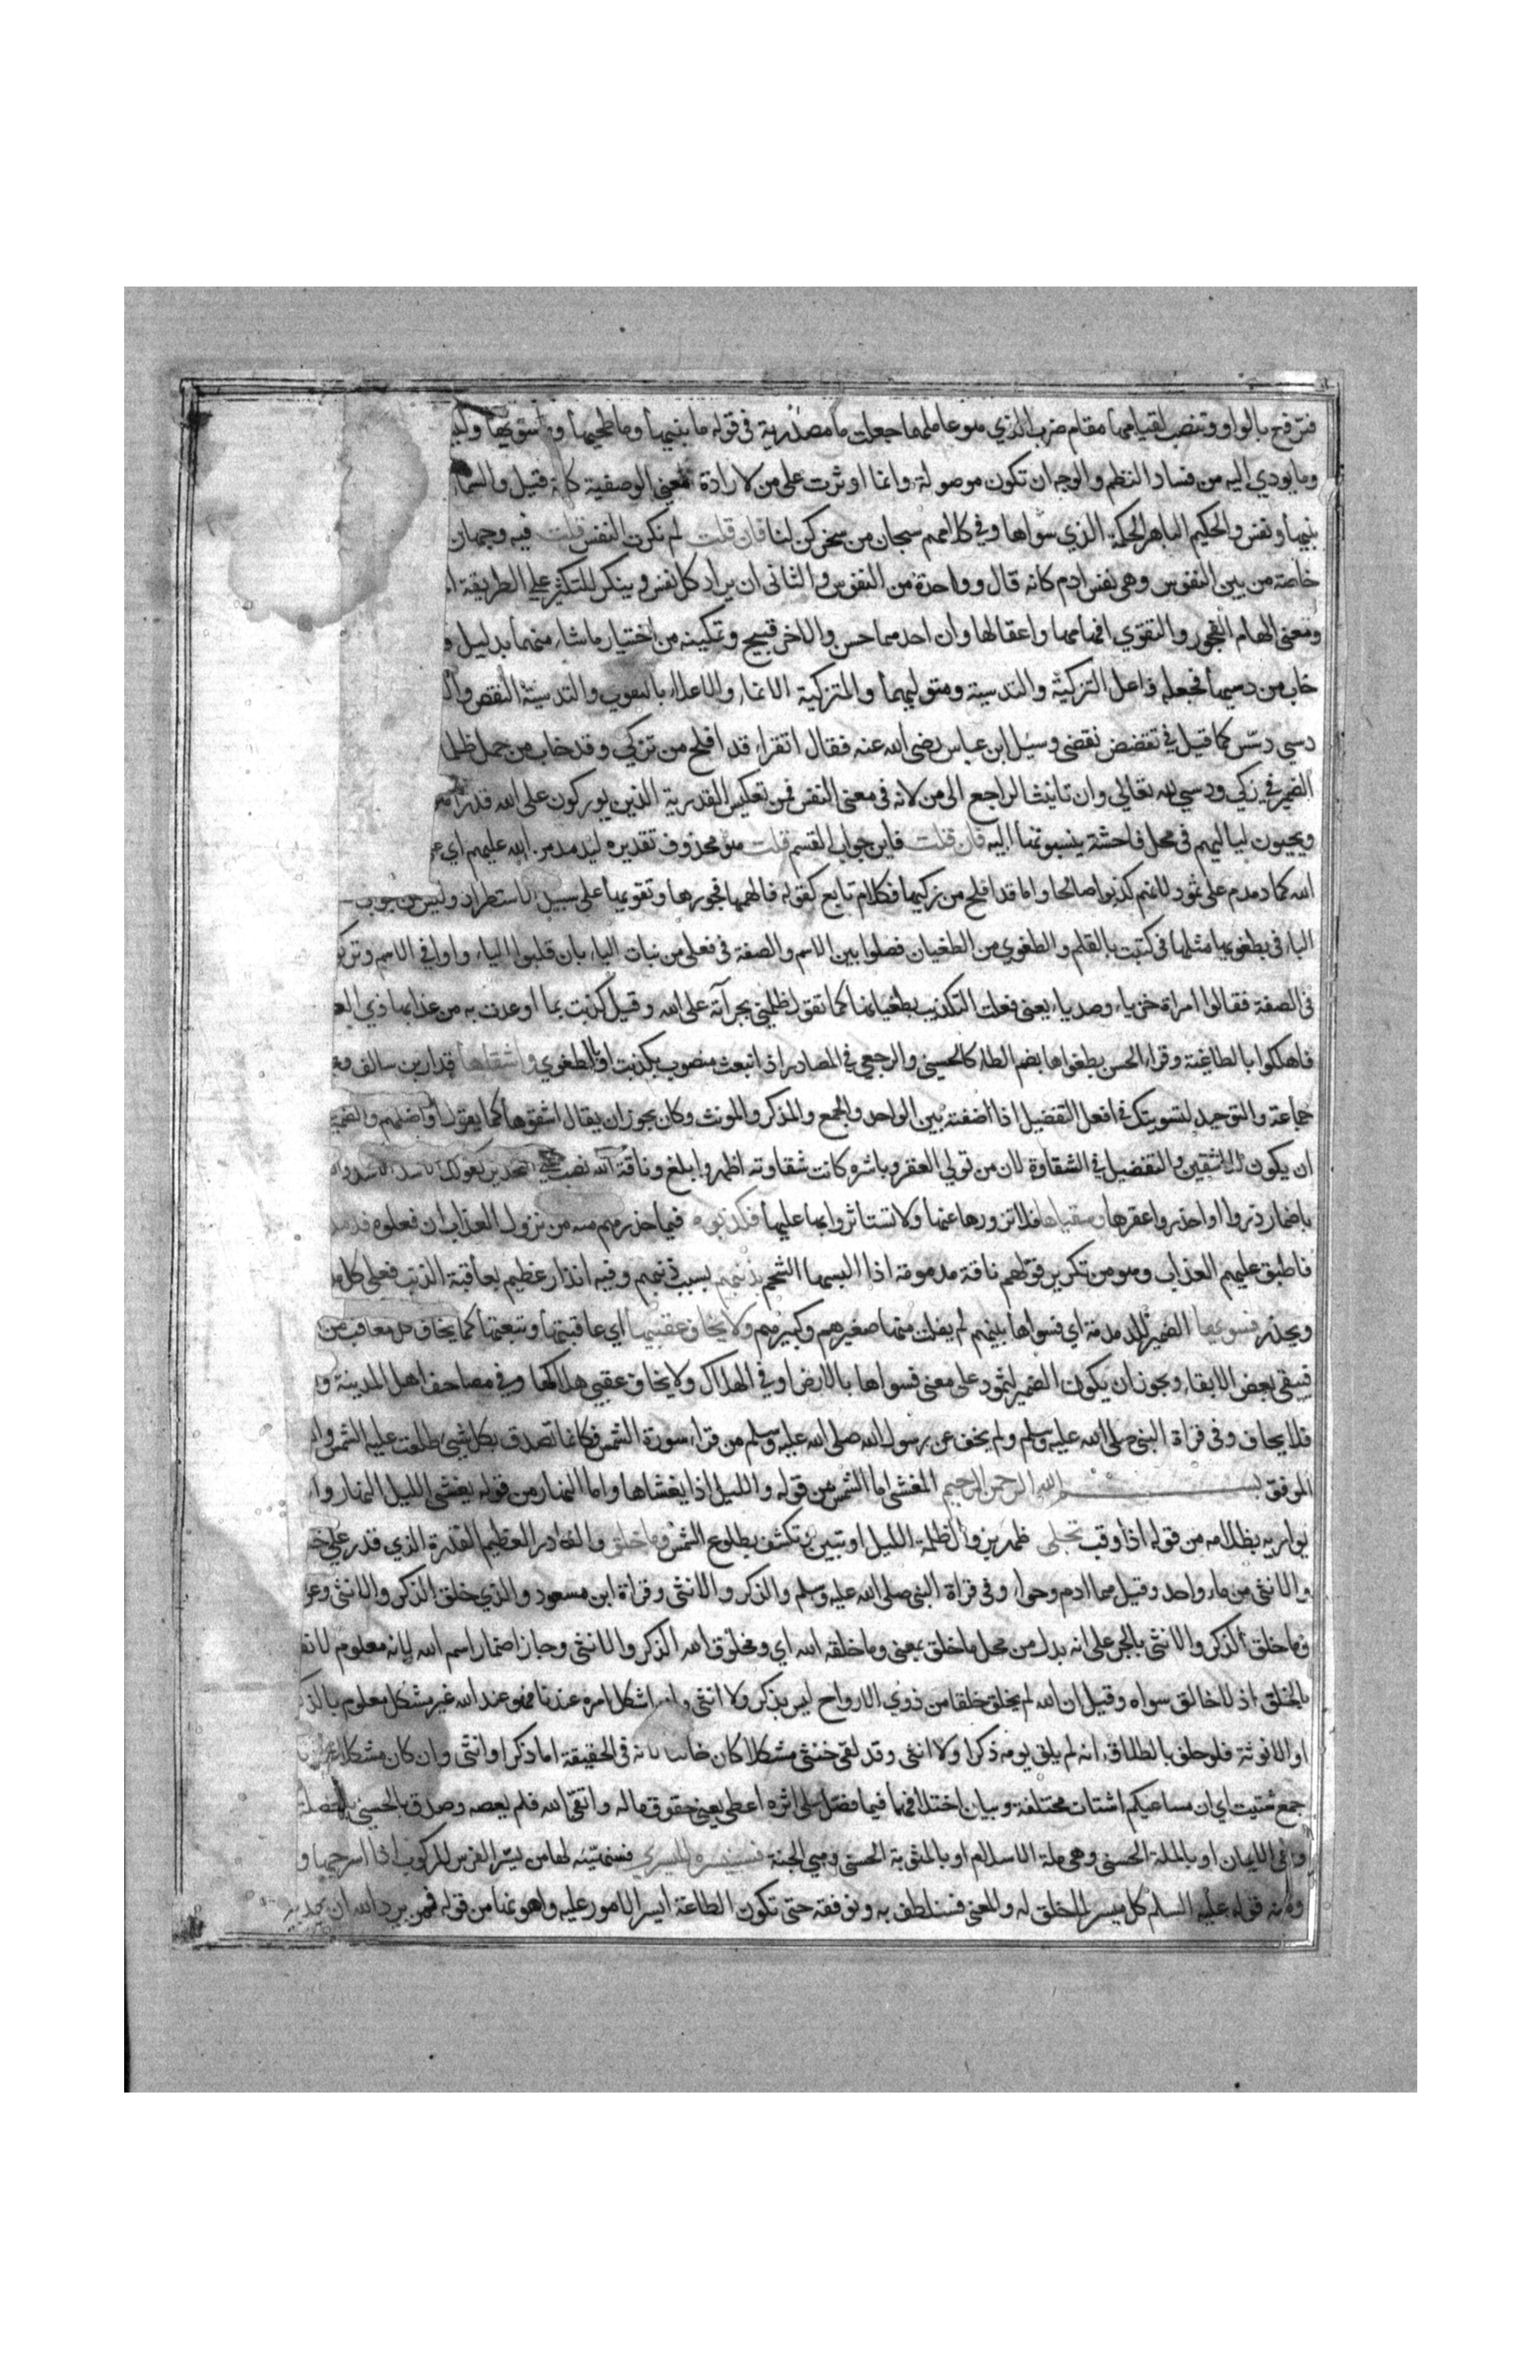 فترفع بالواو وتنصب لقيامها مقام ضرب الذي هو عاملهما جعلت ما مصدرية في قوله ما بنيها وما طحيها وما سويها وليـ
وما يودي اليه من فساد النظم والوجه ان تكون موصولة وانما اوثرت على من لارادة معنى الوصفية كانه قيل والسماء
بنيها ونفس والحكيم الباهر الحكمة الذي سواها وفي كلامهم سبحان من سخركن لنا فان قلت لم نكرت النفس قلت فيه وجهان
خاصة من بين النفوس وهي نفس ادم كانه قال وواحدة من النفوس والثاني ان يراد كل نفس وينكر للتكثير على الطريقة ا
ومعنى الهام الفجور والتقوي افهامها واعقالها وان احدهما حسن والاخر قبيح وتمكينه من اختيار ما شاء منهما بدليل و
خاب من دسيها فجعله فاعل التزكية والتدسية ومتوليهما والتزكية الانماء والاعلاء بالتقوي والتدسية النقص وال
دسي دسس كما قيل في تقضض تقضى وسئل ابن عباس رضي الله عنه فقال اتقراء قد افلح من تزكي وقد خاب من حمل ظلما
الضمير في زكي ودسي لله تعالي وان تانيث الراجع الى من لانه في معنى النفس فمن تعكيس القدرية الذين يوركون على الله قدرا هو
ويحيون لياليهم في محل فاحشة ينسبونها اليه فان قلت فاين جواب القسم قلت هو محذوف تقديره ليدمدمن الله عليهم اي
الله كما دمدم على ثمود لانهم كذبوا صالحا واما قد افلح من زكيها فكلام تابع كقوله فالهمها فجورها وتقويها على سبيل الاستطراد وليس من جواب
الباء في بطغويها مثلها في كتبت بالقلم والطغوي من الطغيان فصلوا بين الاسم والصفة في فعلى من نبات الياء بان قلبوا الياء واوا في الاسم وتركو
في الصفة فقالوا امراة خزياء وصدياء يعني فعلت التكذيب بطغيانها كما تقول ظلمني بجرآته على الله وقيل كذبت بما اوعدت به من عذابها ذي الطغو
فاهلكوا بالطاغية وقراء الحسن بطغواها بضم الطاء كالحسنى والرجعي في المصادر اذ انبعث منصوب بكذبت او بالطغوي واشقاها قدار بن سالف و
جماعة والتوحيد لتسويتك في افعل التفضيل اذا اضفته بين الواحد والجمع والمذكر والمونث وكان يجوز ان يقال اشقوها كما يقول افاضلهم والضمير
ان يكون للاشقين والتفضيل في الشقاوة لان من تولي العقر وباشره كانت شقاوته اظهر وابلغ وناقة الله نصب على التحذير كقولك الاسد الاسد
باضمار ذروا او احذروا عقرها وسقياها فلا تزورها عنها ولا تستاثروا بها عليها فكذبوه فيما حذرهم منه من نزول العذاب ان فعلوه فدمدم
فاطبق عليهم العذاب وهو من تكرير قولهم ناقة مدمومة اذا البسها الشحم بذنبهم بسبب ذنبهم وفيه انذار عظيم بعاقبة الذنب فعلى كل
ويحذر فسويها الضمير للدمدمة اي فسواها بينهم لم يفلت منها صغيرهم وكبيرهم ولا يخاف عقبيها اي عاقبتها وتبعتها كما يخاف كل معاقب من
فيبقي بعض الابقاء ويجوز ان يكون الضمير لثمود على معنى فسواها بالارض او في الهلاك ولا يخاف عقبي هلاكها وفي مصاحف اهل المدينة و
فلا يخاف وفي قراة النبي صلى الله عليه وسلم ولم يخف عن رسول الله صلى الله عليه وسلم من قراء سورة الشمس فكانما تصدق بكل شيئ طلعت عليه الشمس وا
الموفق بسم الله الرحمن الرحيم المغشى اما الشمس من قوله والليل اذا يغشاها واما النهار من قوله يغشى الليل النهار وا
يواريه بظلامه من قوله اذا وقب تجلى ظهر بزوال ظلمة الليل او تبين وتكشف بطلوع الشمس وما خلق والقادر العظيم القدرة الذي قدر على خـ
والانثى من ماء واحد وقيل هما ادم وحواء وفي قراة النبي صلى الله عليه وسلم والذكر والانثى وقراة ابن مسعود والذي خلق الذكر والانثى وعن
وما خلق الذكر والانثى بالجر على انه بدل من محل ما خلق بمعنى وما خلقه الله اي ومخلوق الله الذكر والانثى وجاز اضمار اسم الله لانه معلوم لانفـ
بالخلق اذ لا خالق سواه وقيل ان الله لم يخلق خلقا من ذوي الارواح ليس بذكر ولا انثى وان اشكل امره عندنا فهو عند الله غير مشكل معلوم بالذكـ
او الانوثة فلو حلف بالطلاق انه لم يلق يومه ذكرا ولا انثى وقد لقى خنثى مشكلا كان حانثا لانه في الحقيقة اما ذكر او انثى وان كان مشكلا عندنا
جمع شتيت اي ان مساعيكم اشتات مختلفة وبيان اختلافها فيما فصل على اثره اعطى يعني حقوق ماله واتقي الله فلم يعصه وصدق بالحسنى بالخصلة
وهي الايمان او بالملة الحسنى وهي ملة الاسلام او بالمثوبة الحسنى وهي الجنة فسنيسره لليسرى فسنهيئه لها من يسر الفرس للركوب اذا اسرجها و
ومنه قوله عليه السلام كل ميسر لما خلق له والمعنى فسنلطف به ونوفقه حتى تكون الطاعة ايسر الامور عليه واهونها من قوله فمن يرد الله ان يهديه